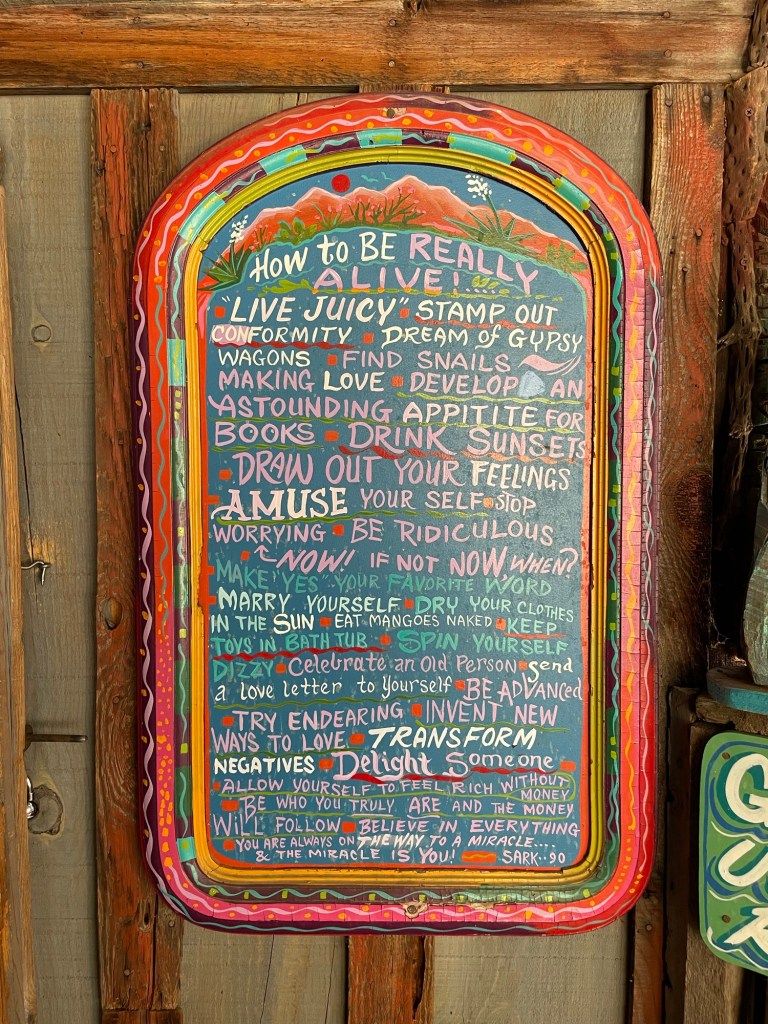 HOW to BE REALLY
ALIVE!....
"LIVE JUICY" STAMP OUT
CONFORMITY DREAM OF GYPSY
WAGONS FIND SNAILS
MAKING LOVE DEVELOP AN
ASTOUNDING APPITITE FOR
BOOKS DRINK SUNSETS
DRAW OUT YOUR FEELINGS
AMUSE YOUR SELF STOP
WORRYING BE RIDICULOUS
NOW! IF NOT NOW WHEN?
MAKE "YES" YOUR FAVORITE WORD
MARRY YOURSELF DRY YOUR CLOTHES
IN THE SUN EAT MANGOES NAKED KEEP
TOYS IN BATH TUB SPIN YOURSELF
DIZZY Celebrate an Old Person send
a love letter to yourself BE ADVANCed
TRY ENDEARING INVENT NEW
WAYS TO LOVE TRANSFORM
NEGATIVES Delight Someone
ALLOW YOURSELF TO FEEL RICH WITHOUT
MONEY
BE WHO YOU TRULY ARE AND THE MONEY
WILL FOLLOW BELIEVE IN EVERYTHING
YOU ARE ALWAYS ON THE WAY TO A MIRACLE....
& THE MIRACLE IS YOU! SARK..90